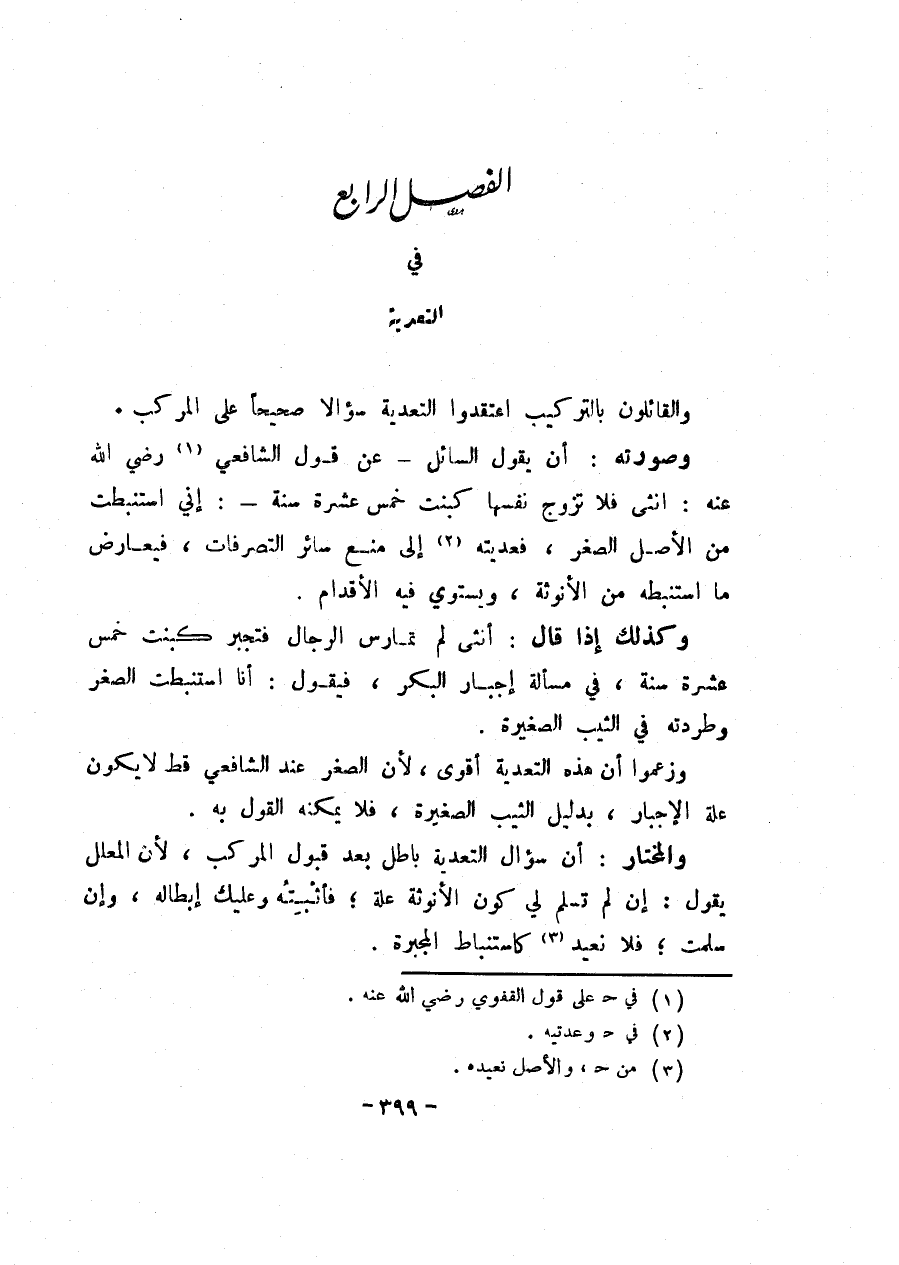 الفصل الرابع
في
التعدية
والقائلون بالتركيب اعتقدوا التعدية سؤالا صحيحاً على المركب .
وصورته : أن يقول السائل – عن قول الشافعي (١) رضي الله
عنه : انثى فلا تزوج نفسها كبنت خمس عشرة سنة – : إني استنبطت
من الأصل الصغر ، فعديته (٢) إلى منع سائر التصرفات ، فيعارض
ما استنبطه من الأنوثة ، ويستوي فيه الأقدام .
وكذلك إذا قال : أنثى لم تمارس الرجال فتجبر كبنت خمس
عشرة سنة ، في مسألة إجبار البكر ، فيقول : أنا استنبطت الصغر
وطردته في الثيب الصغيرة .
وزعموا أن هذه التعدية أقوى ، لأن الصغر عند الشافعي قط لايكون
علة الإجبار ، بدليل الثيب الصغيرة ، فلا يمكنه القول به .
والمختار : أن سؤال التعدية باطل بعد قبول المركب ، لأن المعلل
يقول : إن لم تسلم لي كون الأنوثة علة ؛ فأثبيتُه وعليك إبطاله ، وإن
سلمت ؛ فلا نعيد (٣) كاستنباط المجبرة .
(١) في ح على قول القفوي رضي الله عنه .
(٢) في ح وعدتيه .
(٣) من ح ، والأصل نعيده .
- ٣٩٩ -